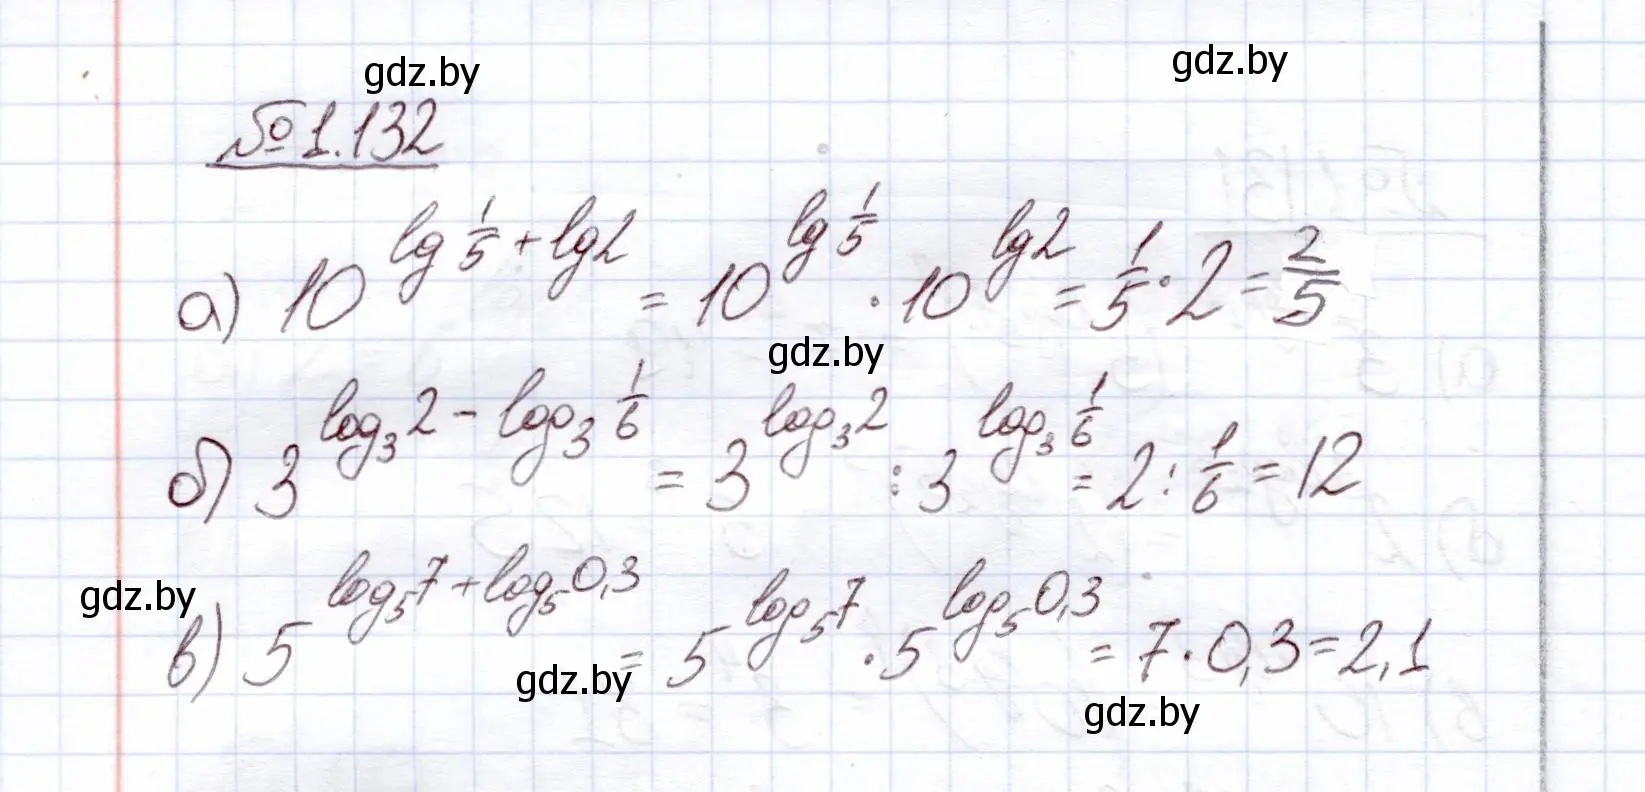 gdz.by
gdz.by
№ 1.132
а) 10^(lg 1/5 + lg 2) = 10^(lg 1/5) · 10^(lg 2) = 1/5 · 2 = 2/5
gdz.by
б) 3^(log₃2 - log₃ 1/6) = 3^(log₃2) : 3^(log₃ 1/6) = 2 : 1/6 = 12
в) 5^(log₅7 + log₅0,3) = 5^(log₅7) · 5^(log₅0,3) = 7 · 0,3 = 2,1
gdz.by
gdz.by
gdz.by